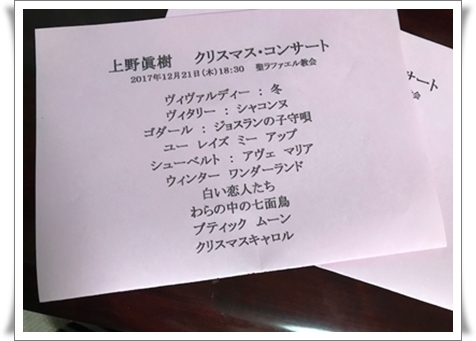 上野眞樹 クリスマス・コンサート
2017年12月21日(木)18:30 聖ラファエル教会
ヴィヴァルディー : 冬
ヴィタリー : シャコンヌ
ゴダール : ジョスランの子守唄
ユー レイズ ミー アップ
シューベルト : アヴェ マリア
ウィンター ワンダーランド
白い恋人たち
わらの中の七面鳥
プティック ムーン
クリスマスキャロル
サート
会